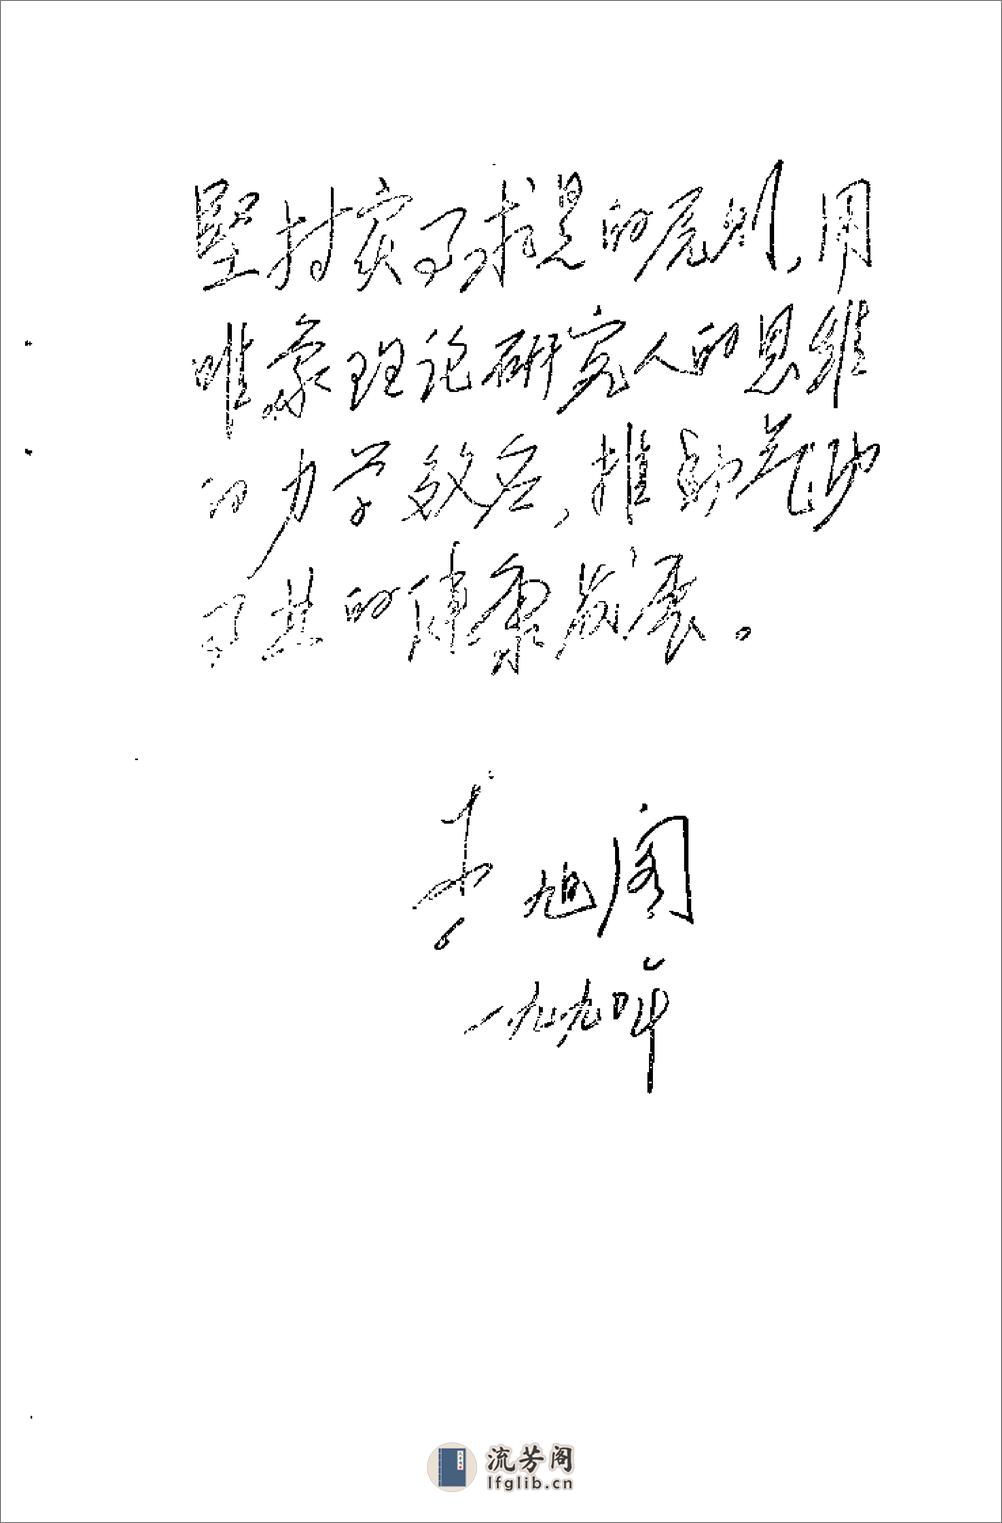 坚持实事求是的原则，用
唯象理论研究人的思维
的力学效应，推动气功
事业的健康发展。
李旭阁
一九九〇年
流芳阁
lfglib.cn